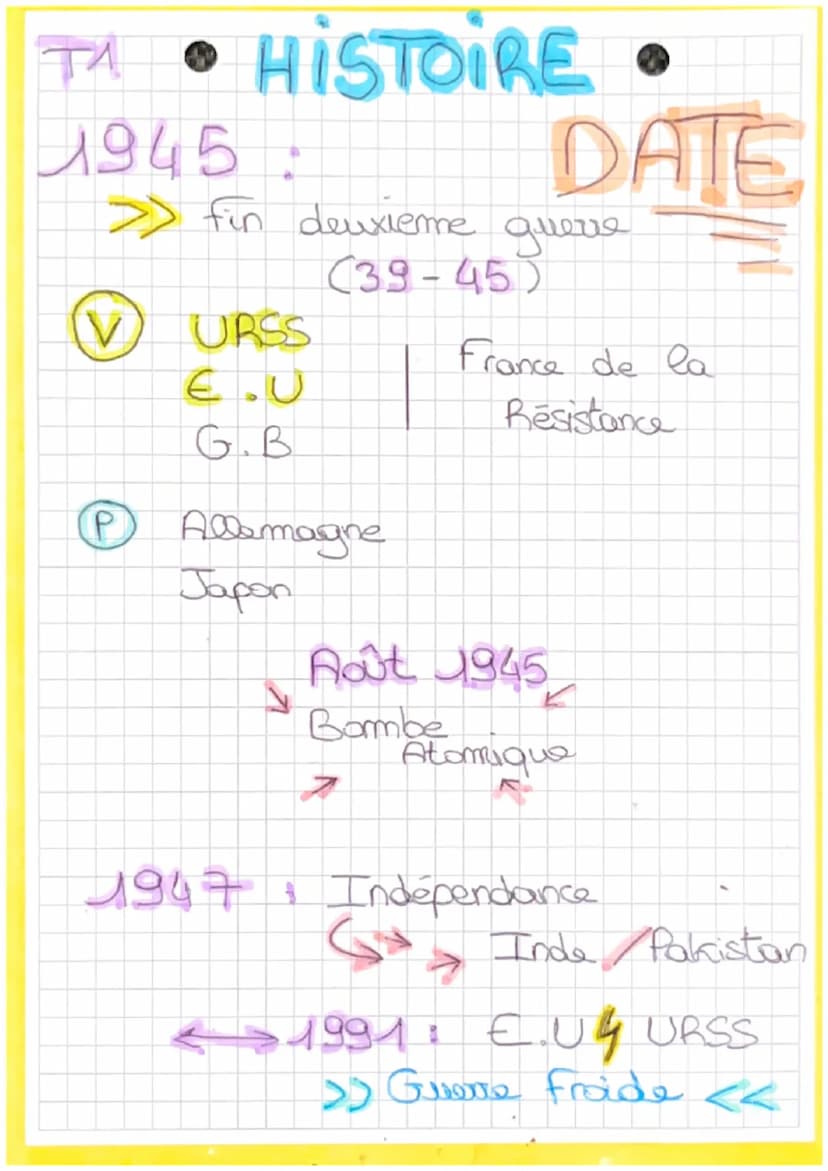 T1 HISTOIRE
1945 : DATE
>> fin deuxieme guerre
(39-45)
V URSS
E.U
G.B
France de la
Résistance
P Allemagne
Japon
Août 1945
Bombe
Atomique
1947 : Indépendance
Inde / Pakistan
↔ 1991 : E.U ϟ URSS
>> Guerre froide <<